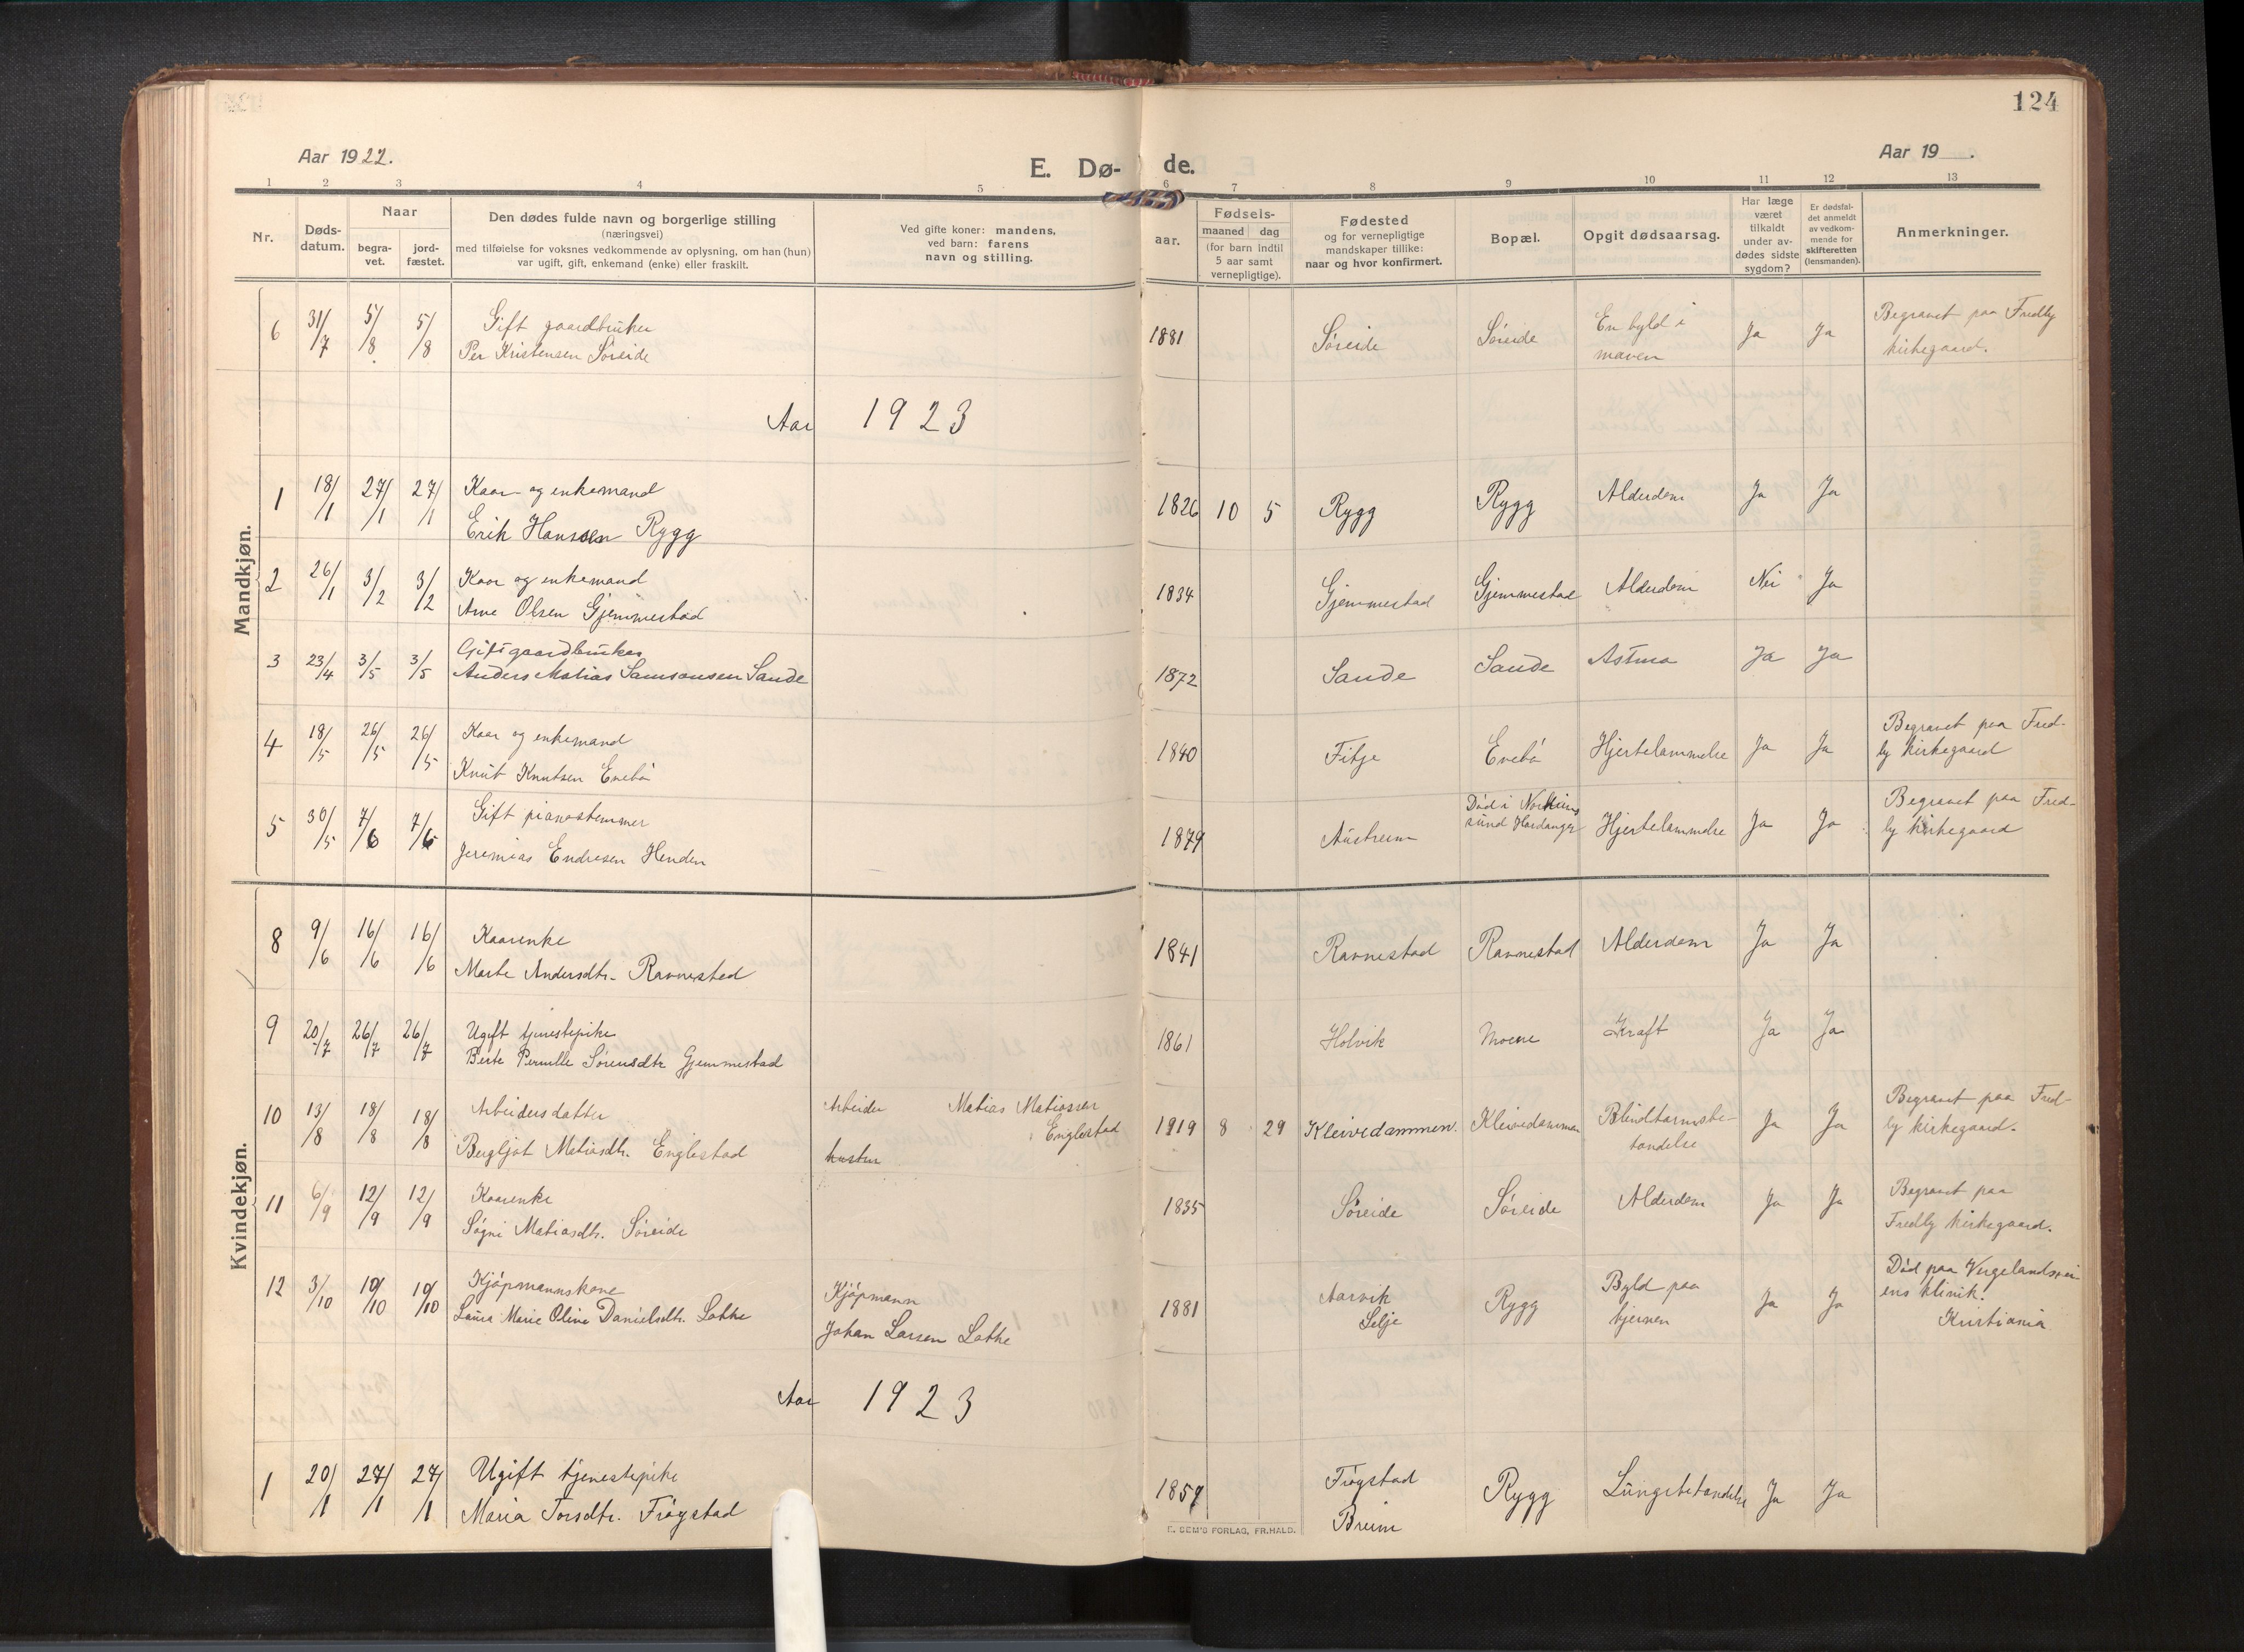 124
Aar 1922.
E. Dø- de.
Aar 19 .
1 2 3 4 5 6 7 8 9 10 11 12 13
Nr.
Døds-
datum.
Naar
begra-
vet.
jord-
fæstet.
Den dødes fulde navn og borgerlige stilling
(næringsvei)
med tilføielse for voksnes vedkommende av oplysning, om han (hun)
var ugift, gift, enkemand (enke) eller fraskilt.
Ved gifte koner: mandens,
ved barn: farens
navn og stilling.
Fødsels-
aar.
maaned dag
(for barn indtil
5 aar samt
vernepligtige).
Fødested
og for vernepligtige
mandskaper tillike:
naar og hvor konfirmert.
Bopæl.
Opgit dødsaarsag.
Har læge
været
tilkaldt
under av-
dødes sidste
sygdom?
Er dødsfal-
det anmeldt
av vedkom-
mende for
skifteretten
(lensmanden).
Anmerkninger.
Mandkjøn.
6 31/7 5/8 5/8 Gift gaardbruker
Per Kristensen Søreide
1881 Søreide Søreide En byld i
maven
Ja Ja Begravet paa Fredly
kirkegaard.
Aar 1923
1 18/1 27/1 27/1 Kaar- og enkemand
Erik Hansen Rygg
1826 10 5 Rygg Rygg Alderdom Ja Ja
2 26/1 3/2 3/2 Kaar og enkemand
Arne Olsen Gjemmestad
1834 Gjemmestad Gjemmestad Alderdom Nei Ja
3 23/4 3/5 3/5 Gift gaardbruker
Anders Matias Samsonsen Sande
1872 Sande Sande Astma Ja Ja
4 18/5 26/5 26/5 Kaar og enkemand
Knut Knutsen Enebø
1840 Fitje Enebø Hjertelammelse Ja Ja Begravet paa Fred-
ly kirkegaard
5 30/5 7/6 7/6 Gift pianostemmer
Jeremias Endresen Henden
1879 Austreim Død i Norheims
sund Hardanger
Hjertelammelse Ja Ja Begravet paa Fred-
ly kirkegaard
Kvindekjøn.
8 9/6 16/6 16/6 Kaarenke
Marte Andersdtr. Ravnestad
1841 Ravnestad Ravnestad Alderdom Ja Ja
9 20/7 26/7 26/7 Ugift tjenestepike
Berte Pernille Sørensdtr Gjemmestad
1861 Holvik Moene Kræft Ja Ja
10 13/8 18/8 18/8 Arbeidersdatter
Bergljot Matiasdtr. Englestad
Arbeider Matias Matiassen
Englestad
hustru
1919 8 29 Kleivedammen. Kleivedammen Blindtarmsbe-
tændelse
Ja Ja Begravet paa Fred-
ly kirkegaard.
11 6/9 12/9 12/9 Kaarenke
Søgni Matiasdtr. Søreide
1835 Søreide Søreide Alderdom Ja Ja Begravet paa
Fredly kirkegaard.
12 3/10 10/10 10/10 Kjøpmannskone
Laura Marie Oline Danielsdtr. Løkke
Kjøpmann
Johan Larsen Løkke
1881 Aarvik
Selje
Rygg Byld paa
hjernen
Ja Ja Død paa Vugelandsvei-
ens klinik.
Kristiania
Aar 1923
1 20/1 27/1 27/1 Ugift tjenestepike
Maria Torsdtr. Frøystad
1857 Frøystad
Breim
Rygg Lungebetændelse Ja Ja
E. SEM'S FORLAG, FR.HALD.